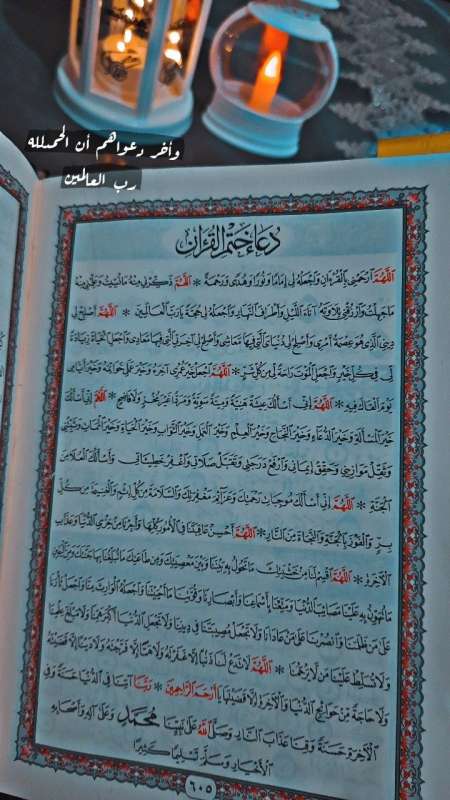 وآخر دعواهم أن الحمدلله
رب العالمين
دُعَاءُ خَتْمِ الْقُرْآنِ
اللَّهُمَّ ارْحَمْنِي بِالْقُرْءَانِ وَاجْعَلْهُ لِي إِمَامًا وَنُورًا وَهُدًى وَرَحْمَةً * اللَّهُمَّ ذَكِّرْنِي مِنْهُ مَا نَسِيتُ وَعَلِّمْنِي مِنْهُ
مَا جَهِلْتُ وَارْزُقْنِي تِلَاوَتَهُ آنَاءَ اللَّيْلِ وَأَطْرَافَ النَّهَارِ وَاجْعَلْهُ لِي حُجَّةً يَا رَبَّ الْعَالَمِينَ * اللَّهُمَّ أَصْلِحْ لِي
دِينِي الَّذِي هُوَ عِصْمَةُ أَمْرِي وَأَصْلِحْ لِي دُنْيَايَ الَّتِي فِيهَا مَعَاشِي وَأَصْلِحْ لِي آخِرَتِي الَّتِي فِيهَا مَعَادِي وَاجْعَلِ الْحَيَاةَ زِيَادَةً
لِي فِي كُلِّ خَيْرٍ وَاجْعَلِ الْمَوْتَ رَاحَةً لِي مِنْ كُلِّ شَرٍّ * اللَّهُمَّ اجْعَلْ خَيْرَ عُمْرِي آخِرَهُ وَخَيْرَ عَمَلِي خَوَاتِمَهُ وَخَيْرَ أَيَّامِي
يَوْمَ أَلْقَاكَ فِيهِ * اللَّهُمَّ إِنِّي أَسْأَلُكَ عِيشَةً هَنِيَّةً وَمِيتَةً سَوِيَّةً وَمَرَدًّا غَيْرَ مُخْزٍ وَلَا فَاضِحٍ * اللَّهُمَّ إِنِّي أَسْأَلُكَ
خَيْرَ الْمَسْأَلَةِ وَخَيْرَ الدُّعَاءِ وَخَيْرَ النَّجَاحِ وَخَيْرَ الْعِلْمِ وَخَيْرَ الْعَمَلِ وَخَيْرَ الثَّوَابِ وَخَيْرَ الْحَيَاةِ وَخَيْرَ الْمَمَاتِ وَثَبِّتْنِي
وَثَقِّلْ مَوَازِينِي وَحَقِّقْ إِيمَانِي وَارْفَعْ دَرَجَتِي وَتَقَبَّلْ صَلَاتِي وَاغْفِرْ خَطِيئَاتِي وَأَسْأَلُكَ الْعُلَا مِنَ
الْجَنَّةِ * اللَّهُمَّ إِنِّي أَسْأَلُكَ مُوجِبَاتِ رَحْمَتِكَ وَعَزَائِمَ مَغْفِرَتِكَ وَالسَّلَامَةَ مِنْ كُلِّ إِثْمٍ وَالْغَنِيمَةَ مِنْ كُلِّ
بِرٍّ وَالْفَوْزَ بِالْجَنَّةِ وَالنَّجَاةَ مِنَ النَّارِ * اللَّهُمَّ أَحْسِنْ عَاقِبَتَنَا فِي الْأُمُورِ كُلِّهَا وَأَجِرْنَا مِنْ خِزْيِ الدُّنْيَا وَعَذَابِ
الْآخِرَةِ * اللَّهُمَّ اقْسِمْ لَنَا مِنْ خَشْيَتِكَ مَا تَحُولُ بِهِ بَيْنَنَا وَبَيْنَ مَعْصِيَتِكَ وَمِنْ طَاعَتِكَ مَا تُبَلِّغُنَا بِهَا جَنَّتَكَ وَمِنَ الْيَقِينِ
مَا تُهَوِّنُ بِهِ عَلَيْنَا مَصَائِبَ الدُّنْيَا وَمَتِّعْنَا بِأَسْمَاعِنَا وَأَبْصَارِنَا وَقُوَّتِنَا مَا أَحْيَيْتَنَا وَاجْعَلْهُ الْوَارِثَ مِنَّا وَاجْعَلْ ثَأْرَنَا
عَلَى مَنْ ظَلَمَنَا وَانْصُرْنَا عَلَى مَنْ عَادَانَا وَلَا تَجْعَلْ مُصِيبَتَنَا فِي دِينِنَا وَلَا تَجْعَلِ الدُّنْيَا أَكْبَرَ هَمِّنَا وَلَا مَبْلَغَ عِلْمِنَا
وَلَا تُسَلِّطْ عَلَيْنَا مَنْ لَا يَرْحَمُنَا * اللَّهُمَّ لَا تَدَعْ لَنَا ذَنْبًا إِلَّا غَفَرْتَهُ وَلَا هَمًّا إِلَّا فَرَّجْتَهُ وَلَا دَيْنًا إِلَّا قَضَيْتَهُ
وَلَا حَاجَةً مِنْ حَوَائِجِ الدُّنْيَا وَالْآخِرَةِ إِلَّا قَضَيْتَهَا يَا أَرْحَمَ الرَّاحِمِينَ * رَبَّنَا آتِنَا فِي الدُّنْيَا حَسَنَةً وَفِي
الْآخِرَةِ حَسَنَةً وَقِنَا عَذَابَ النَّارِ وَصَلَّى اللَّهُ عَلَى نَبِيِّنَا مُحَمَّدٍ وَعَلَى آلِهِ وَأَصْحَابِهِ
الْأَخْيَارِ وَسَلَّمَ تَسْلِيمًا كَثِيرًا
٦٠٥